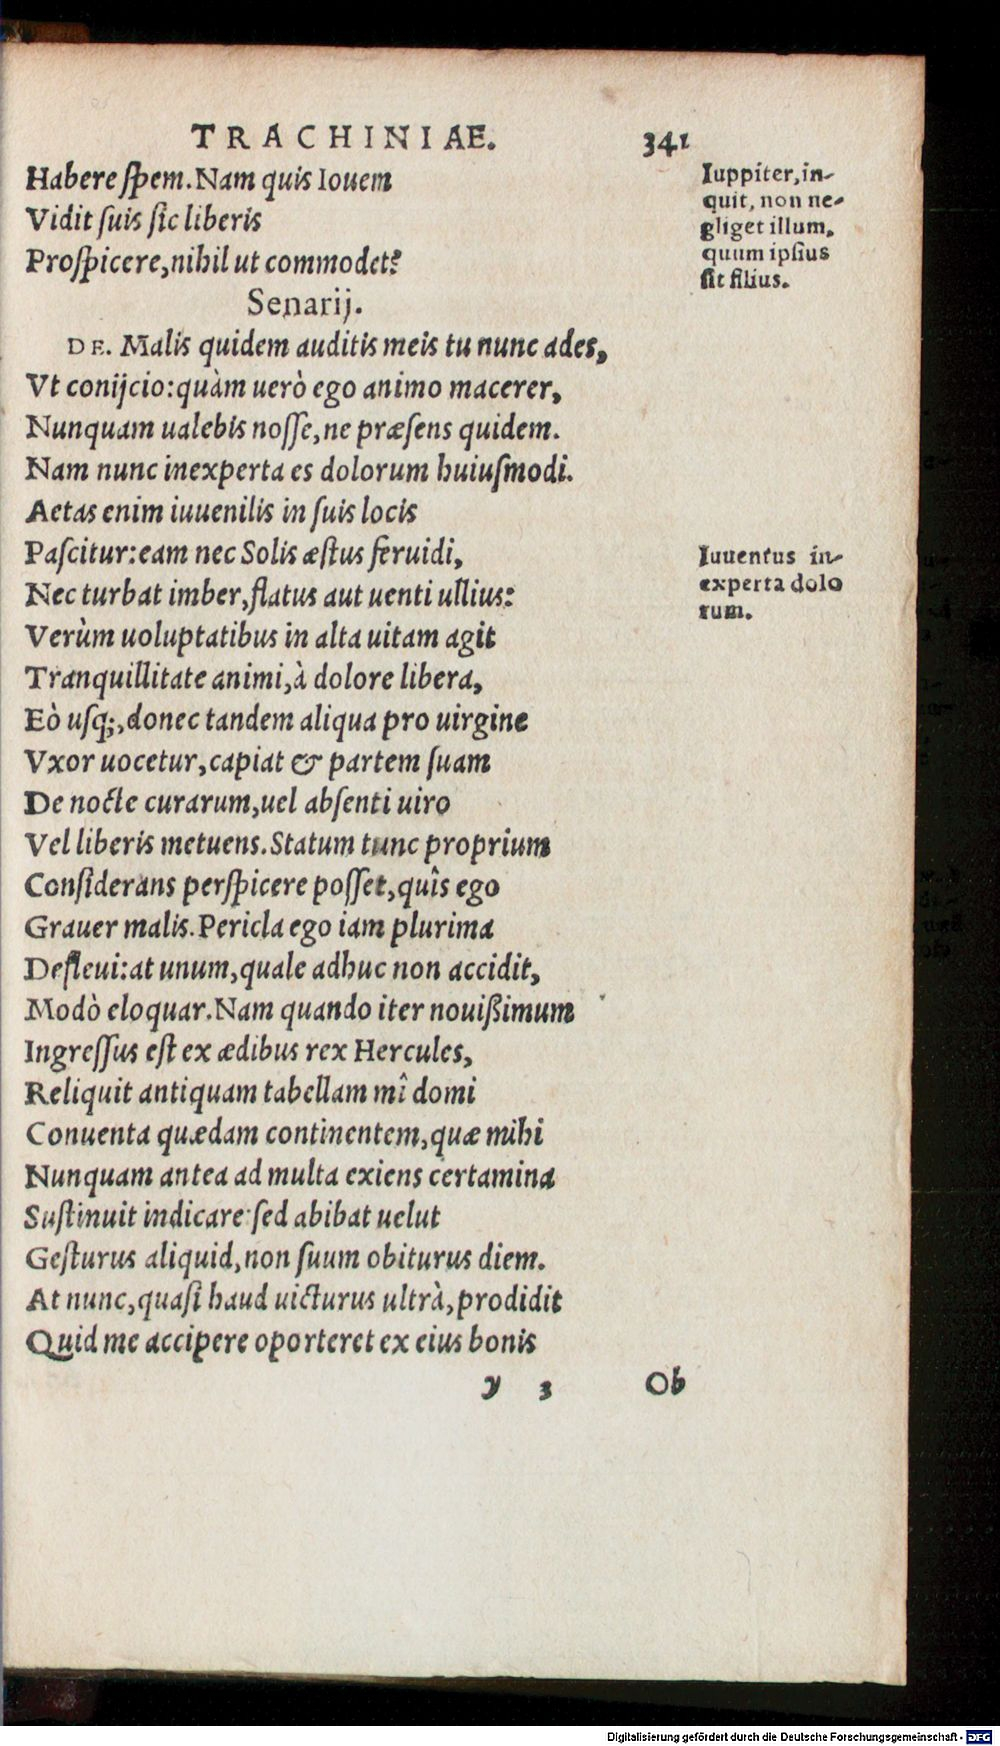 TRACHINIAE. 341
Habere ſpem. Nam quis Iouem
Vidit ſuis ſic liberis
Proſpicere, nihil ut commodet?
Iuppiter, in-
quit, non ne-
gliget illum,
quum ipſius
ſit filius.
Senarij.
DE. Malis quidem auditis meis tu nunc ades,
Vt conijcio: quàm uerò ego animo macerer,
Nunquam ualebis noſſe, ne præſens quidem.
Nam nunc inexperta es dolorum huiuſmodi.
Aetas enim iuuenilis in ſuis locis
Paſcitur: eam nec Solis æſtus feruidi,
Nec turbat imber, flatus aut uenti ullius:
Verùm uoluptatibus in alta uitam agit
Iuuentus in-
experta dolo
rum.
Tranquillitate animi, à dolore libera,
Eò uſq;, donec tandem aliqua pro uirgine
Vxor uocetur, capiat & partem ſuam
De nocte curarum, uel abſenti uiro
Vel liberis metuens. Statum tunc proprium
Conſiderans perſpicere poſſet, quîs ego
Grauer malis. Pericla ego iam plurima
Defleui: at unum, quale adhuc non accidit,
Modò eloquar. Nam quando iter nouißimum
Ingreſſus eſt ex ædibus rex Hercules,
Reliquit antiquam tabellam mî domi
Conuenta quædam continentem, quæ mihi
Nunquam antea ad multa exiens certamina
Suſtinuit indicare: ſed abibat uelut
Geſturus aliquid, non ſuum obiturus diem.
At nunc, quaſi haud uicturus ultrà, prodidit
Quid me accipere oporteret ex eius bonis
y 3 Ob
Digitalisierung gefördert durch die Deutsche Forschungsgemeinschaft - DFG